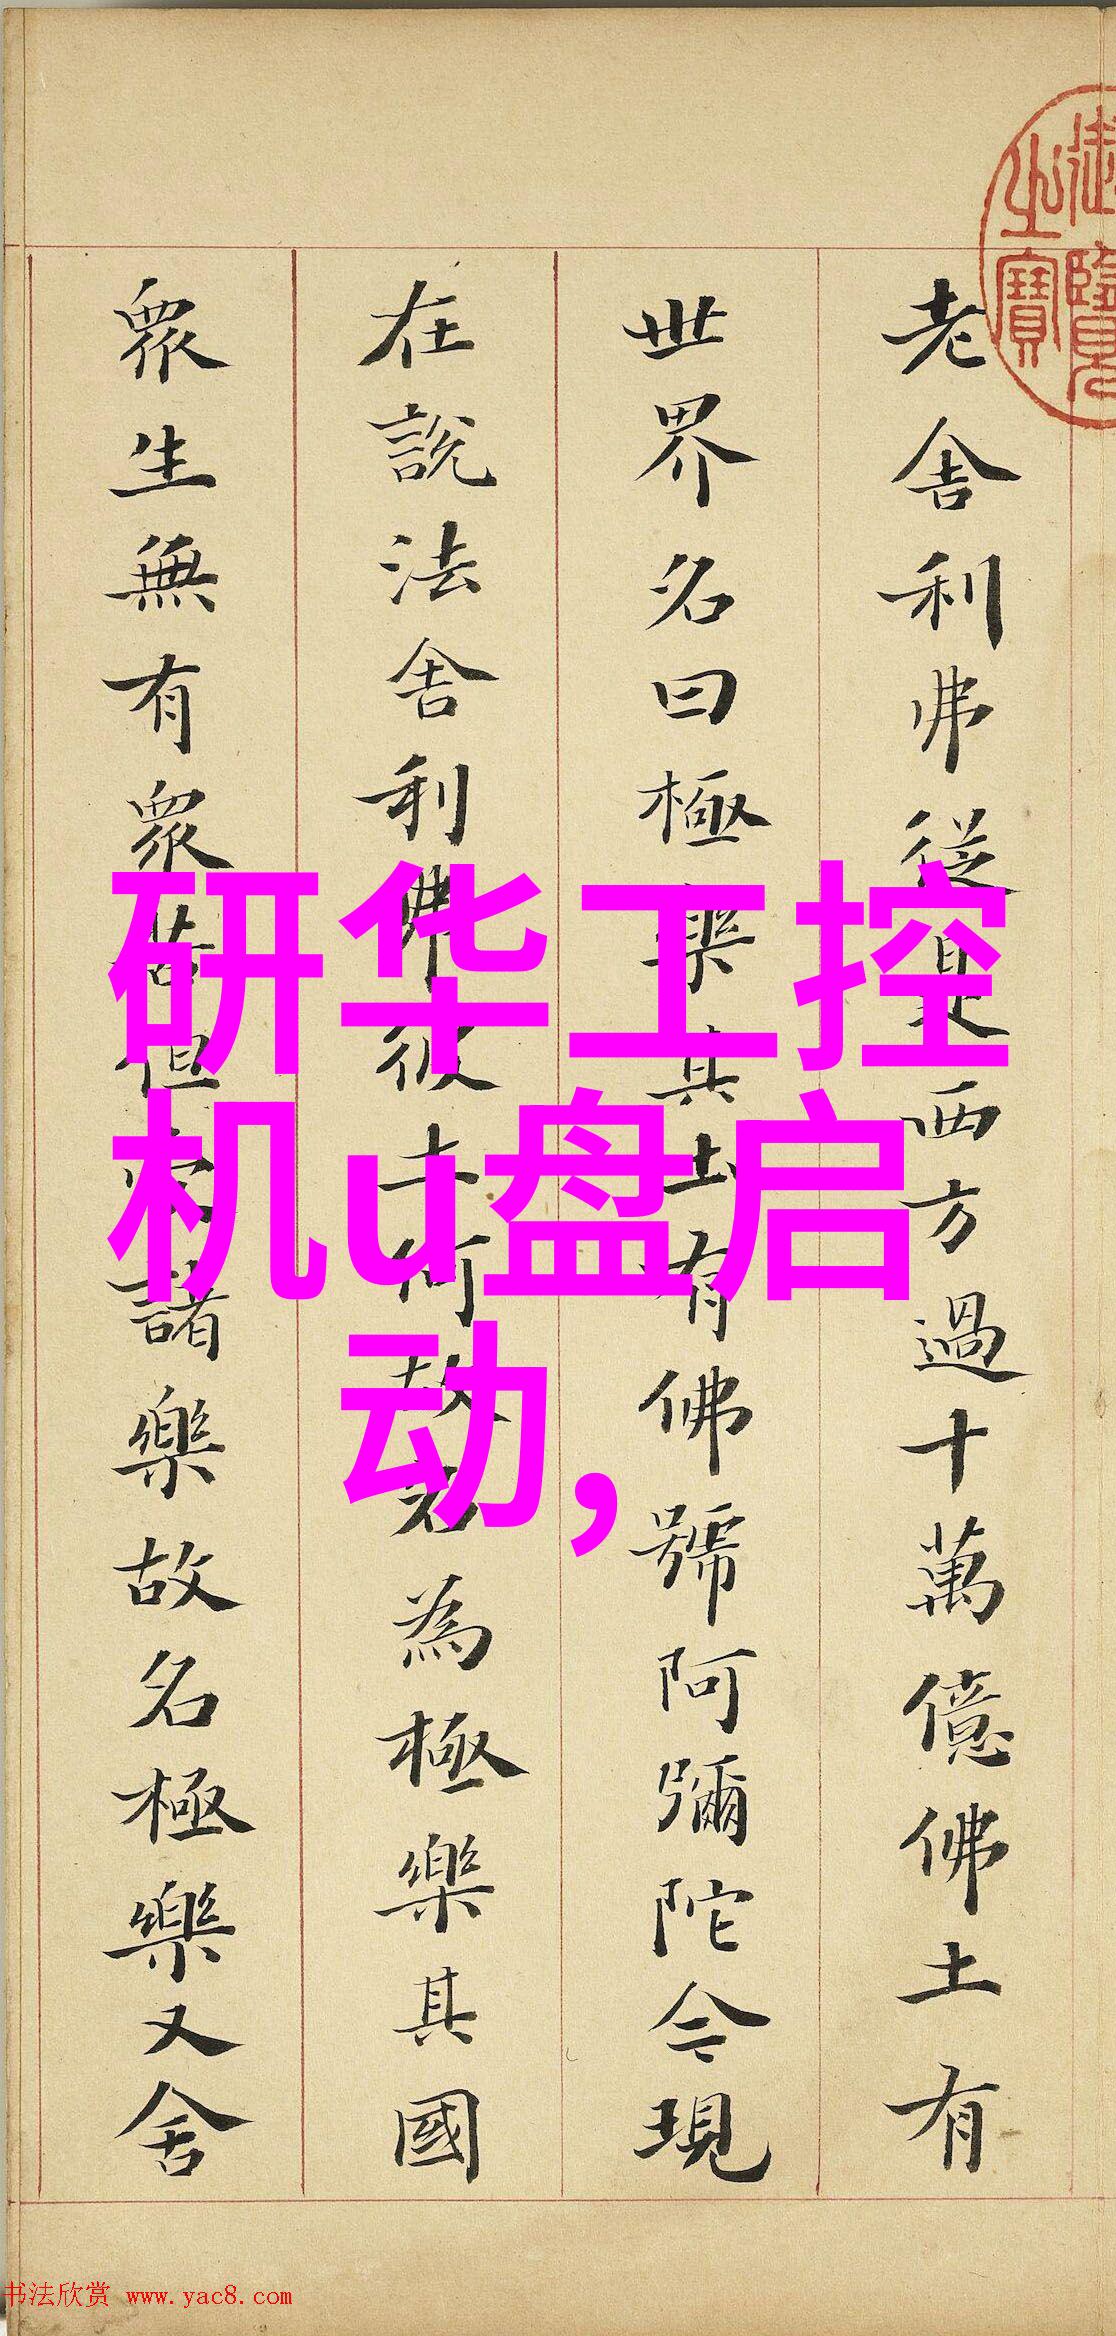 御覽之寶
老舍利弗從是西方過十萬億佛土有
世界名曰極樂其土有佛號阿彌陀今現
在說法舍利弗彼土何故名為極樂其國
眾生無有眾苦但受諸樂故名極樂又舍
研华工控
机u盘启
动,
书法欣赏 www.yac8.com